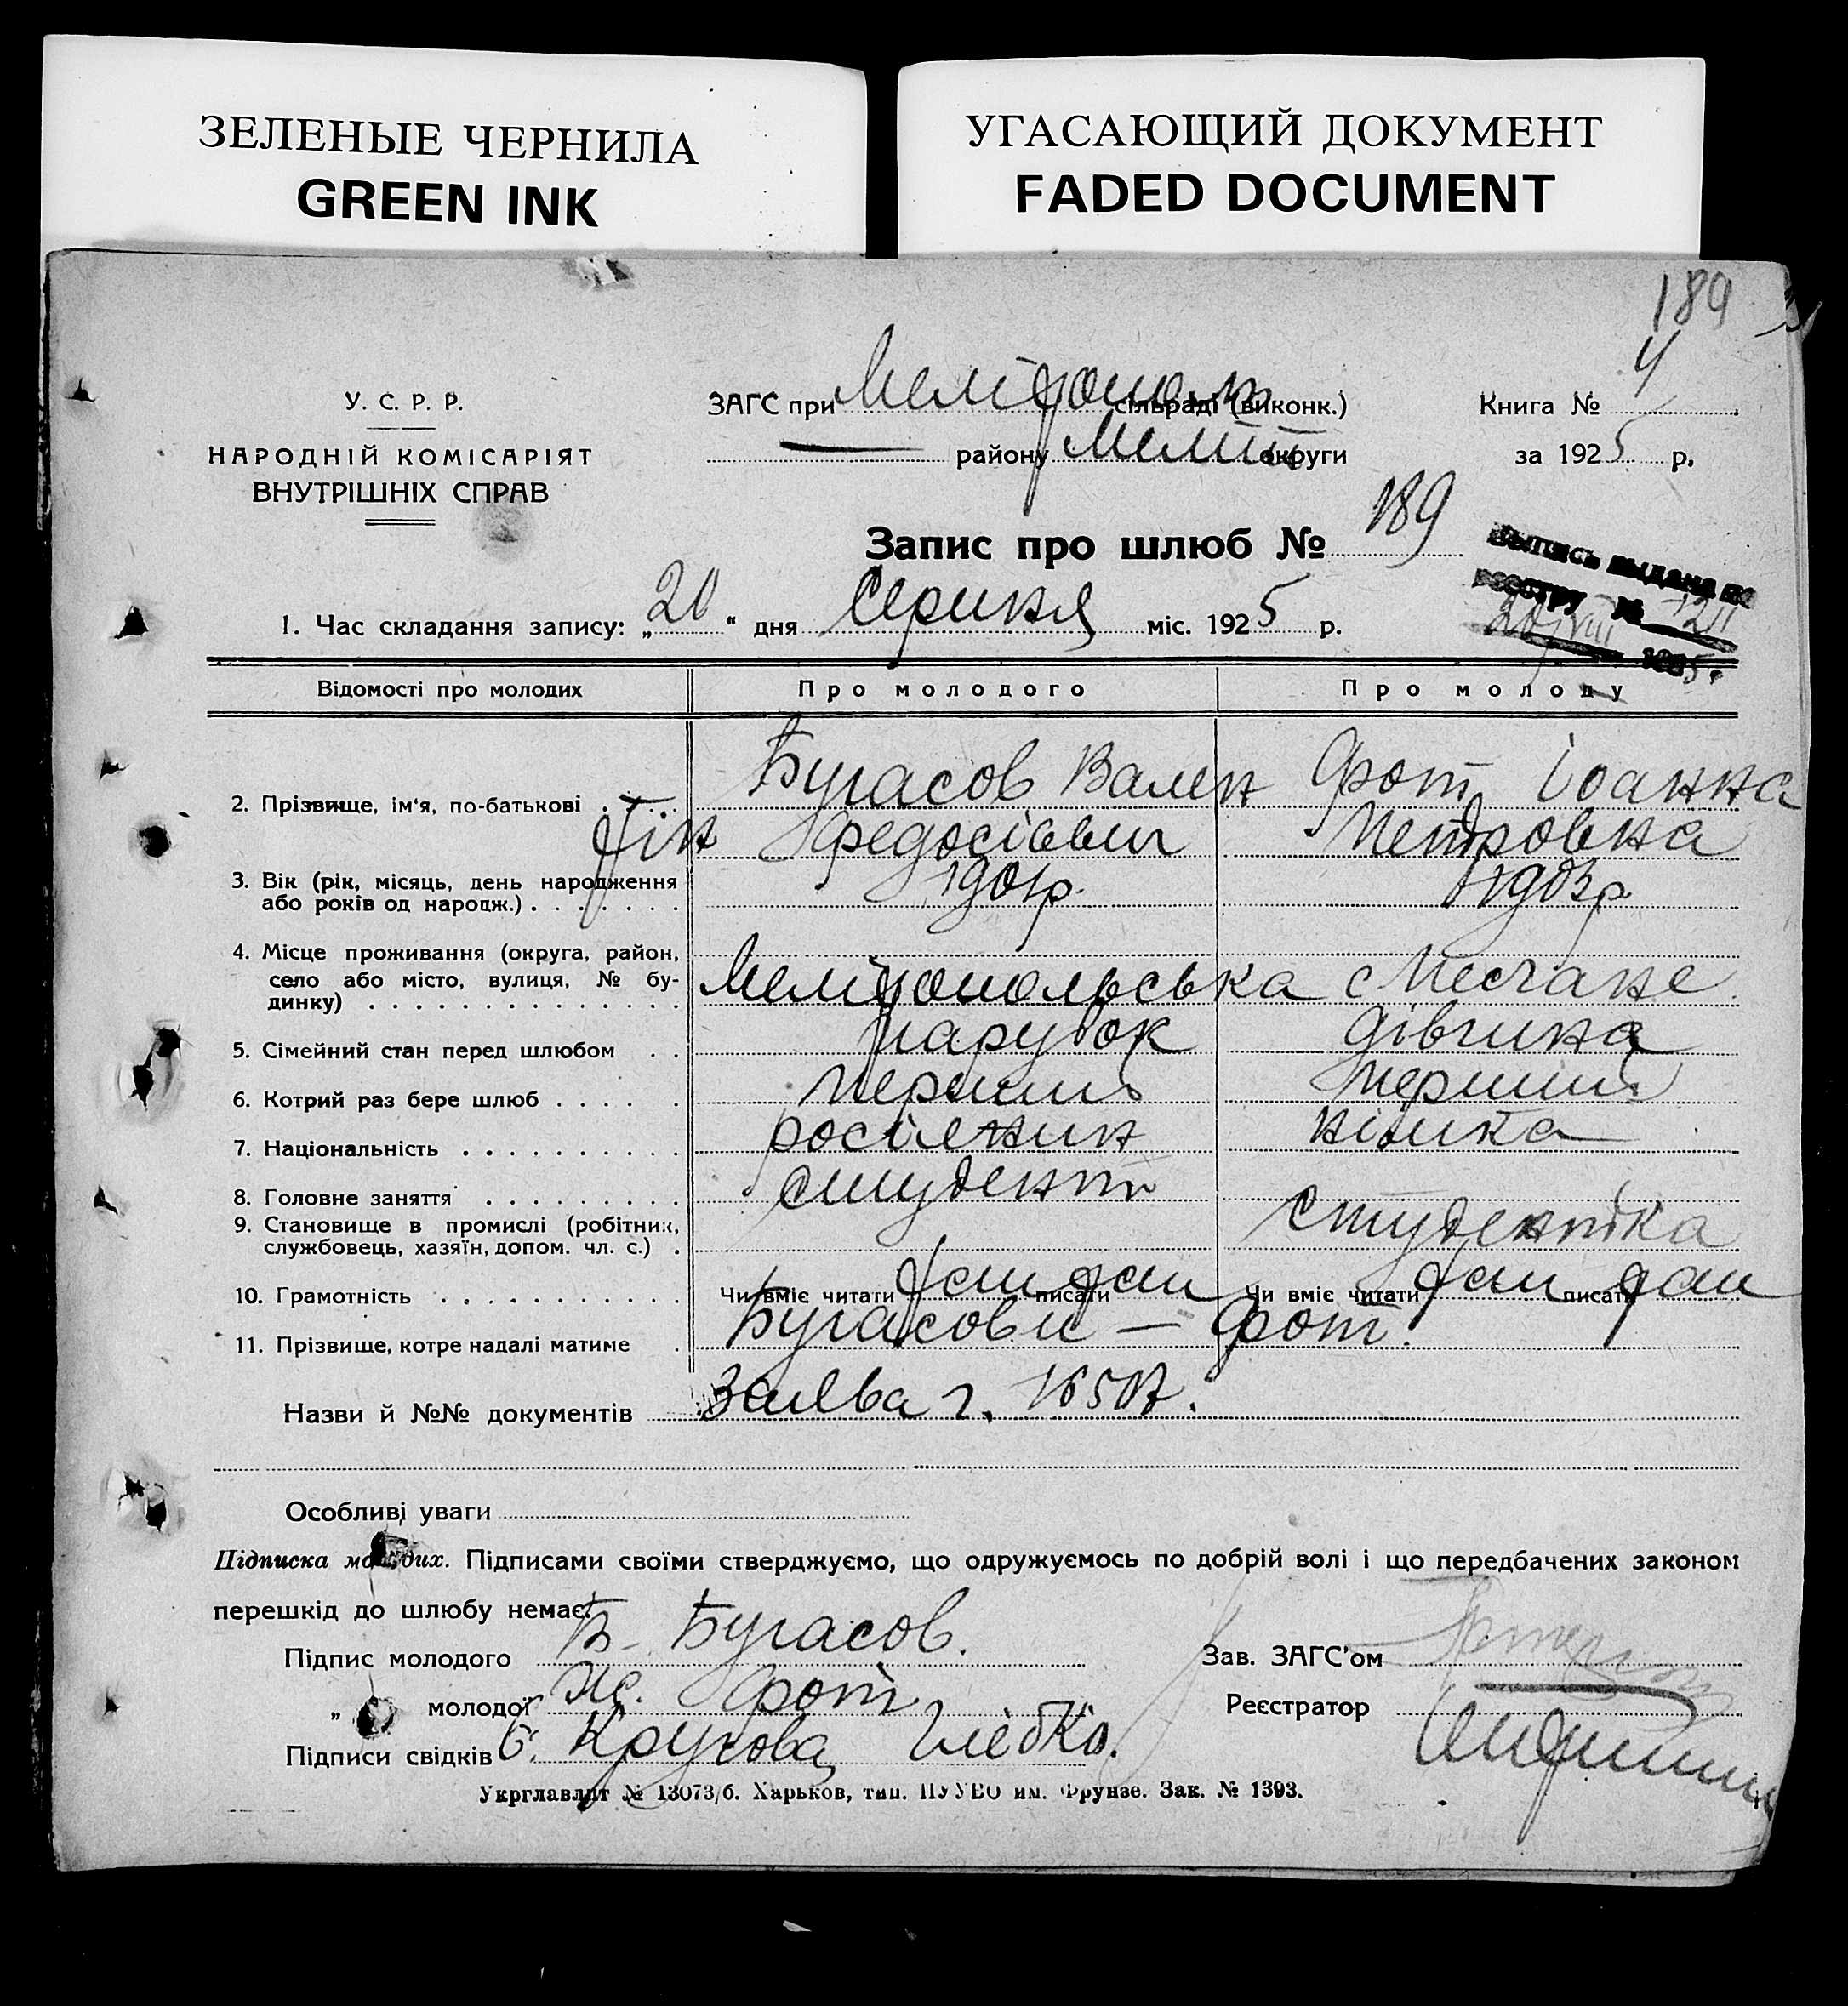 ЗЕЛЕНЫЕ ЧЕРНИЛА
GREEN INK
УГАСАЮЩИЙ ДОКУМЕНТ
FADED DOCUMENT
189
У. С. Р. Р.
НАРОДНІЙ КОМІСАРІЯТ
ВНУТРІШНІХ СПРАВ
ЗАГС при Мелітополь сільраді (виконк.)
району Меліт округи
Книга № 4
за 1925 р.
Запис про шлюб № 189
Выпись выдана по
реестру №
20/VIII 1925.
1. Час складання запису: „20" дня Серпня міс. 1925 р.
Відомості про молодих Про молодого Про молоду
2. Прізвище, ім'я, по-батькові . . . . Бугасов Вален Фот Іоанна
тін Федосієвич Петровна
3. Вік (рік, місяць, день народження 1901р. 1903р.
або років од народж.) . . . . . . .
4. Місце проживання (округа, район,
село або місто, вулиця, № бу- Мелітопольська с
динку) . . . . . . . . . . . . . .
5. Сімейний стан перед шлюбом . . парубок дівчина
6. Котрий раз бере шлюб . . . . . перший перший
7. Національність . . . . . . . . . . росіянин німка
8. Головне заняття . . . . . . . . . студент
9. Становище в промислі (робітник, студентка
службовець, хазяїн, допом. чл. с.) .
10. Грамотність . . . . . . . . . . . Чи вміє читати так писати так Чи вміє читати так писати так
11. Прізвище, котре надалі матиме . Бугасови — Фот.
Назви й №№ документів Заява ч. 16507.
Особливі уваги
Підписка молодих. Підписами своїми стверджуємо, що одружуємось по добрій волі і що передбачених законом
перешкід до шлюбу немає.
Підпис молодого В. Бугасов. Зав. ЗАГС'ом
„ молодої Фот Реєстратор
Підписи свідків Крухова Глебко.
Укрглавліт № 13073/б. Харьков, тип. ПУУВО им. Фрунзе. Зак. № 1393.